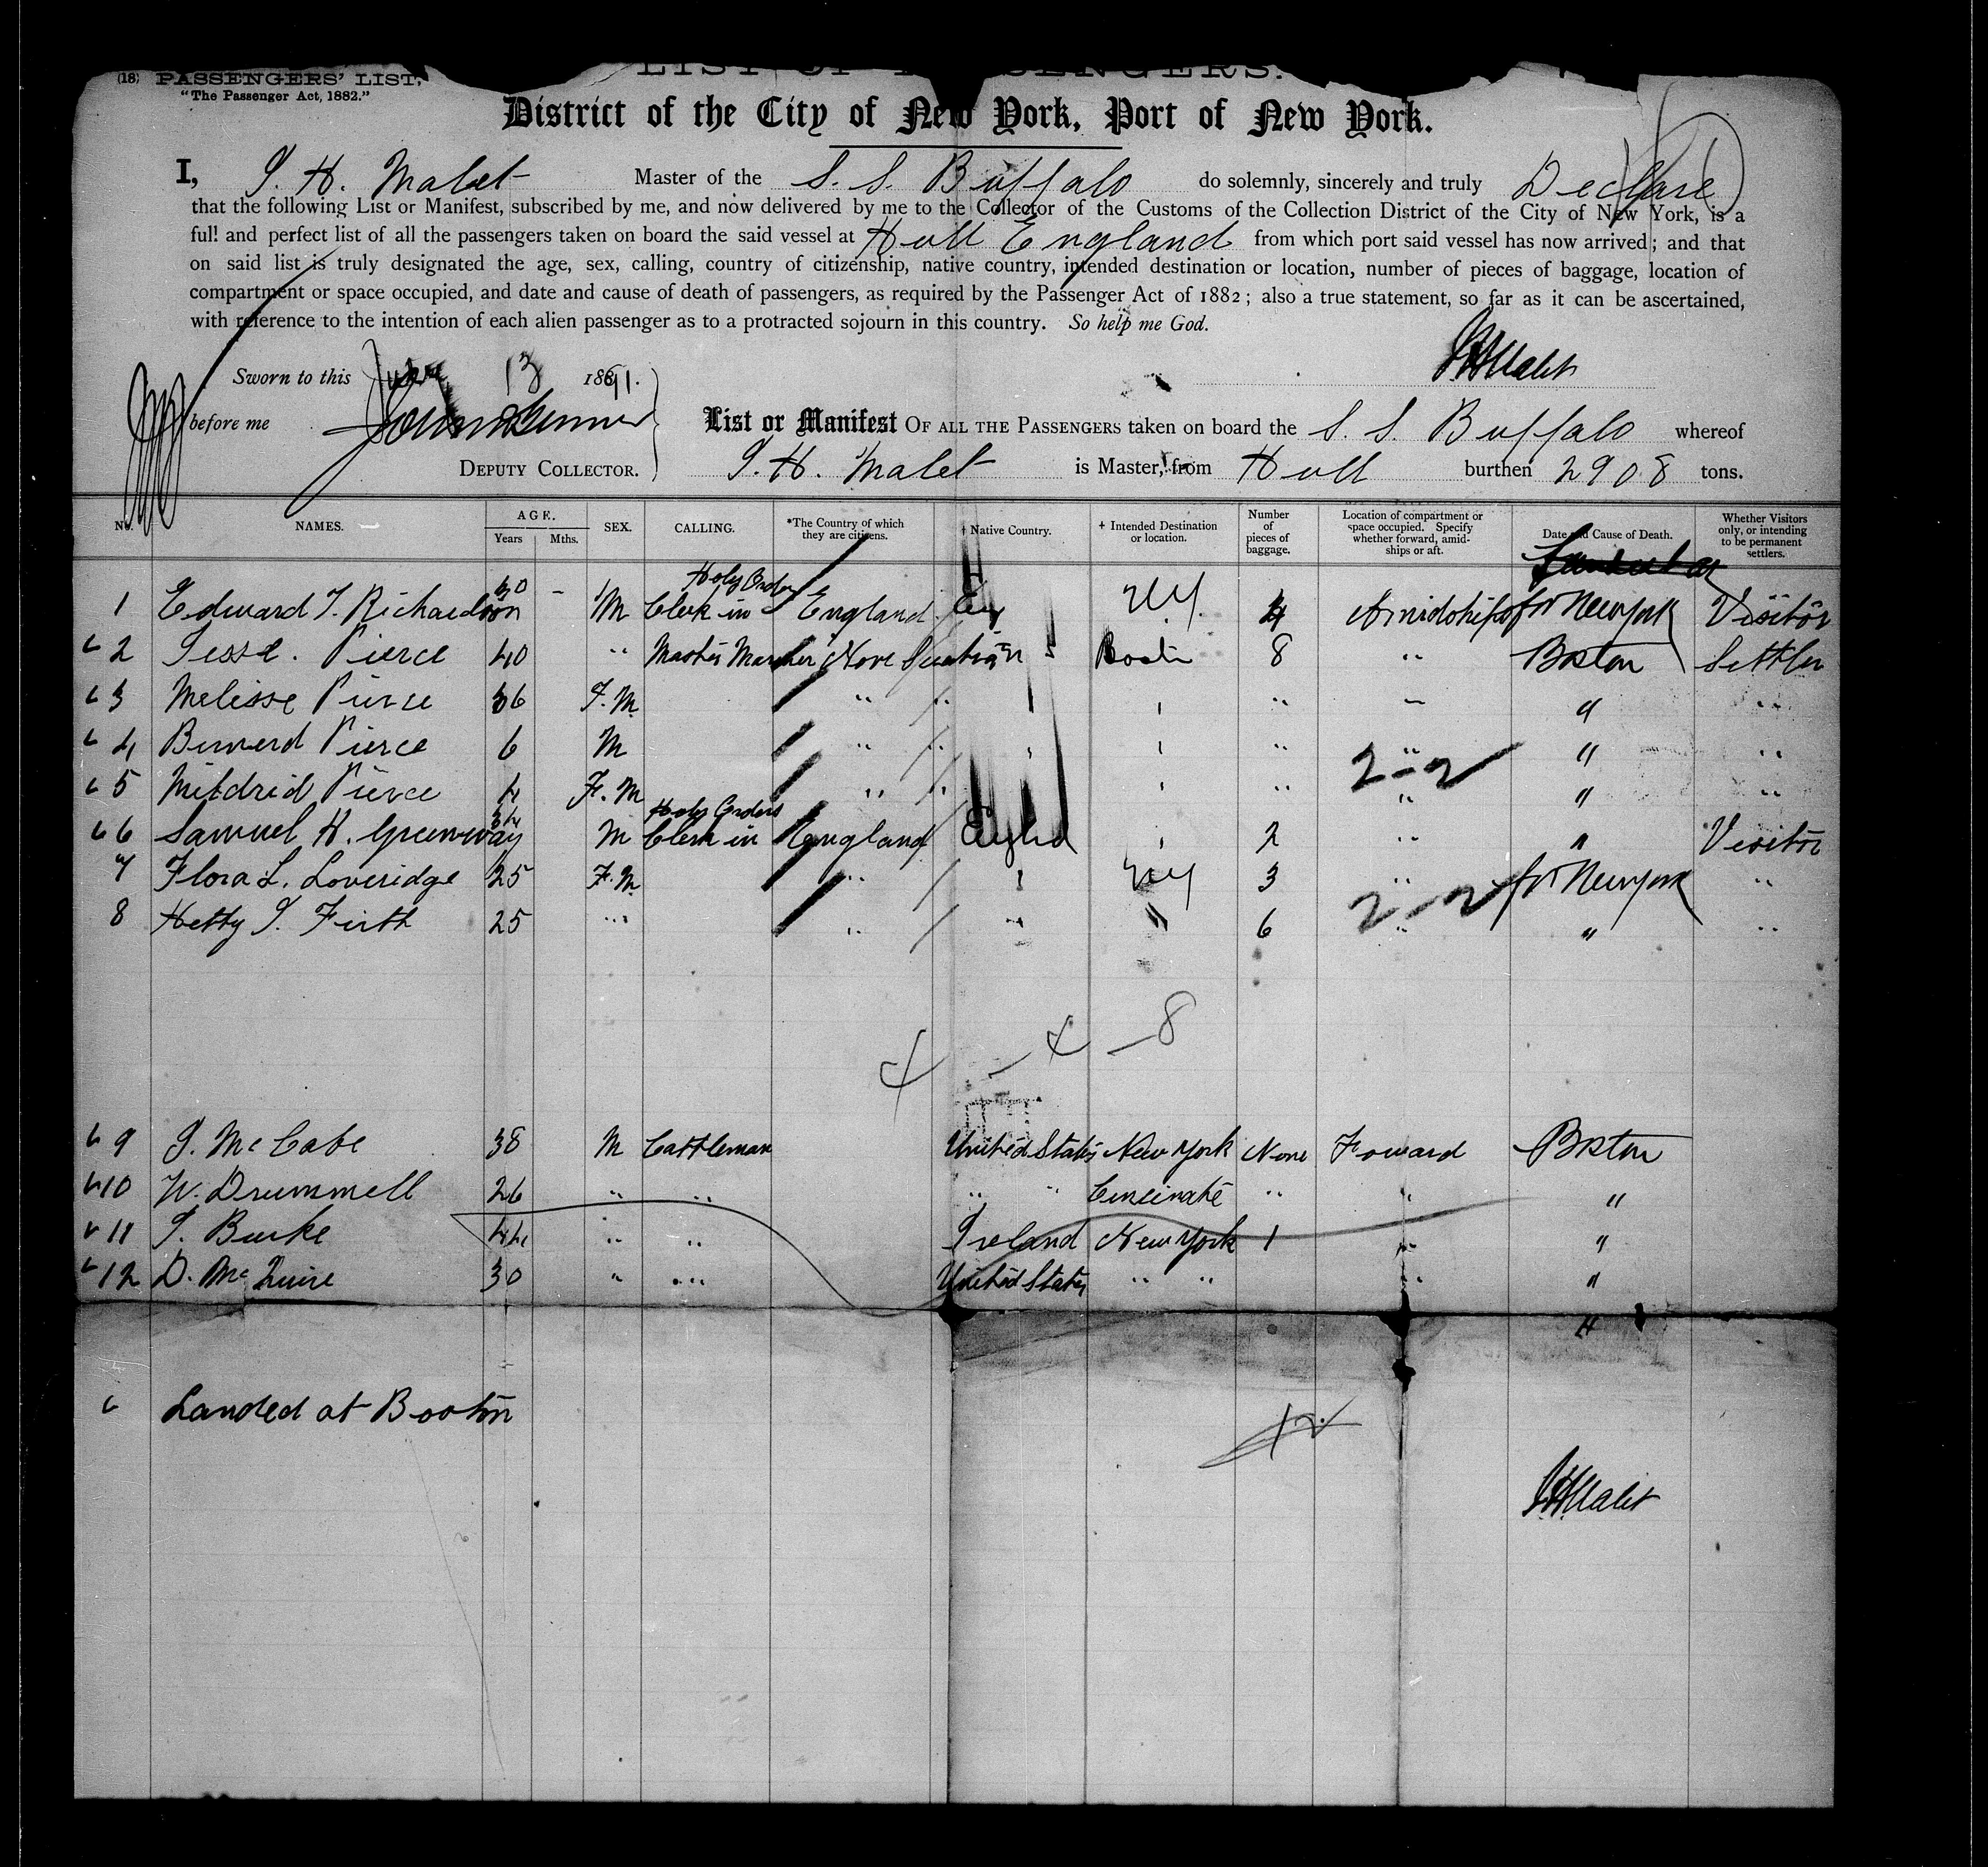 (18) PASSENGERS' LIST,
"The Passenger Act, 1882."
LIST OF PASSENGERS.
District of the City of New York, Port of New York.
I, J. H. Malet Master of the S. S. Buffalo do solemnly, sincerely and truly Declare
that the following List or Manifest, subscribed by me, and now delivered by me to the Collector of the Customs of the Collection District of the City of New York, is a
full and perfect list of all the passengers taken on board the said vessel at Hull England from which port said vessel has now arrived; and that
on said list is truly designated the age, sex, calling, country of citizenship, native country, intended destination or location, number of pieces of baggage, location of
compartment or space occupied, and date and cause of death of passengers, as required by the Passenger Act of 1882; also a true statement, so far as it can be ascertained,
with reference to the intention of each alien passenger as to a protracted sojourn in this country. So help me God.
J.H.Malet
Sworn to this June 13 1891.
before me
DEPUTY COLLECTOR.
List or Manifest OF ALL THE PASSENGERS taken on board the S. S. Buffalo whereof
J. H. Malet is Master, from Hull burthen 2908 tons.
No. NAMES. AGE. Years Mths. SEX. CALLING. *The Country of which they are citizens. † Native Country. † Intended Destination or location. Number of pieces of baggage. Location of compartment or space occupied. Specify whether forward, amidships or aft. Date and Cause of Death. Whether Visitors only, or intending to be permanent settlers.
Landed at
1 Edward T. Richardson 30 - M Clerk in Holy Orders England Eng NY 4 Amidships for New York Visitor
2 Jesse. Pierce 40 " Master Mariner Nova Scotia Boston 8 " Boston Settler
3 Melisse Pierce 36 F.M. " " " " " "
4 Bernerd Pierce 6 M " " " " " "
5 Mildrid Pierce 4 F.M " " " " " "
2-2
6 Samuel H. Greenway 34 M Clerk in Holy Orders England Englnd " 2 " " Visitor
7 Flora L. Loveridge 25 F.M. " " NY 3 " for New York "
8 Hetty J. Firth 25 " " " " 6 " " "
2-2
4 - 4 - 8
9 J. McCabe 38 M Cattleman United States New York None Foward Boston
10 W. Drummell 26 " " " " Cincinate " " "
11 J. Burke 44 " " Ireland New York 1 " "
12 D. McGuire 30 " " United States " " " "
"
Landed at Boston
12
J.H.Malet